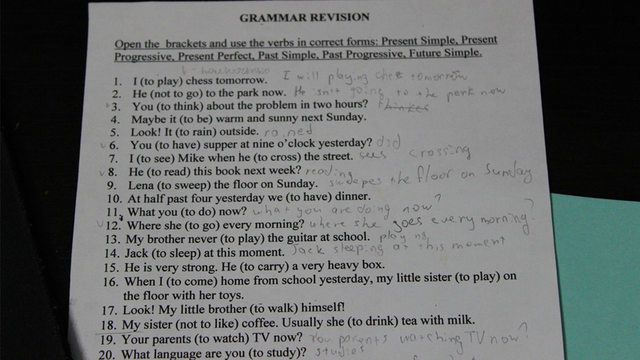 GRAMMAR REVISION
Open the brackets and use the verbs in correct forms: Present Simple, Present
Progressive, Present Perfect, Past Simple, Past Progressive, Future Simple.
1. I (to play) chess tomorrow. I will playing chess tomorrow
2. He (not to go) to the park now. He isn't going to the park now
3. You (to think) about the problem in two hours? thinkes
4. Maybe it (to be) warm and sunny next Sunday.
5. Look! It (to rain) outside. rained
6. You (to have) supper at nine o'clock yesterday? did
7. I (to see) Mike when he (to cross) the street. sees crossing
8. He (to read) this book next week? reading
9. Lena (to sweep) the floor on Sunday. swepes the floor on Sunday
10. At half past four yesterday we (to have) dinner.
11. What you (to do) now? what you are doing now?
12. Where she (to go) every morning? where she goes every morning?
13. My brother never (to play) the guitar at school. playing
14. Jack (to sleep) at this moment. Jack sleeping at this moment
15. He is very strong. He (to carry) a very heavy box.
16. When I (to come) home from school yesterday, my little sister (to play) on
the floor with her toys.
17. Look! My little brother (to walk) himself!
18. My sister (not to like) coffee. Usually she (to drink) tea with milk.
19. Your parents (to watch) TV now? You parents watching TV now?
20. What language are you (to study)? studies